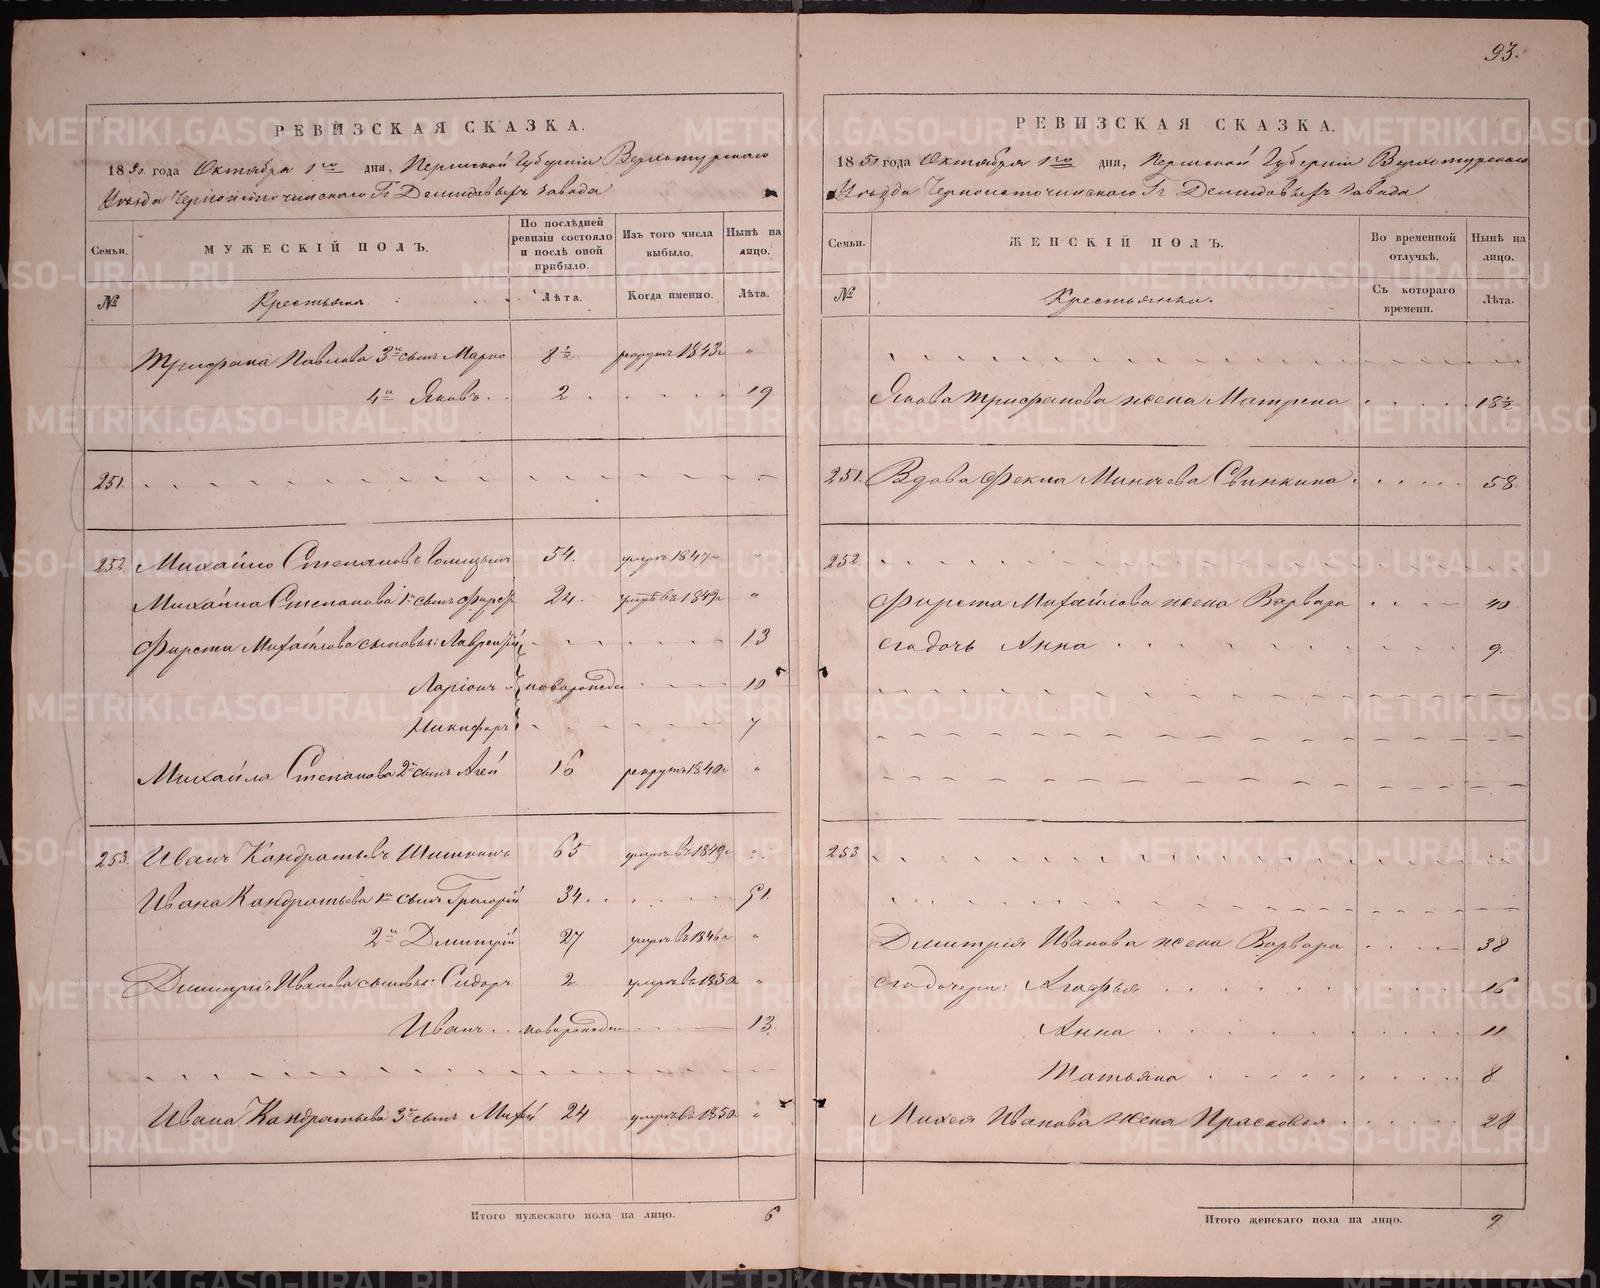 93.
РЕВИЗСКАЯ СКАЗКА.
1850 года Октября 1го дня, Пермской Губернiи Верхотурскаго
Уезда Черноисточинскаго Гг Демидовыхъ завода
Семьи. МУЖЕСКIЙ ПОЛЪ. По послѣдней ревизiи состояло и послѣ оной прибыло. Изъ того числа выбыло. Нынѣ на лицо.
№ Крестьяне Лѣта. Когда именно. Лѣта.
Трифана Павлова 3й сынъ Марко 8½ рекрутъ 1843г "
4й Яковъ 2 19
251.
252. Михайло Степановъ 54. умеръ 1847г "
Михайла Степанова 1й сынъ Фирсъ 24. умеръ въ 1849г "
Фирста Михайлова сыновья: Лаврентiй 13
Ларiонъ новорожден 10
Никифоръ 7
Михайла Степанова 2й сынъ Агей 16 рекрутъ 1840г "
253. Иванъ Кандратьевъ Шишкинъ 65 умеръ въ 1849г "
Ивана Кандратьева 1й сынъ Григорiй 34. 51.
2й Дмитрiй 27 умеръ въ 1846г "
Дмитрiя Иванова сыновья: Сидоръ 2 умеръ въ 1850г "
Иванъ новорожден 13.
Ивана Кандратьева 3й сынъ Михей 24 умеръ въ 1850г "
Итого мужескаго пола на лицо. 6
РЕВИЗСКАЯ СКАЗКА.
1850 года Октября 1го дня, Пермской Губернiи Верхотурскаго
Уезда Черноисточинскаго Гг Демидовыхъ завода
Семьи. ЖЕНСКIЙ ПОЛЪ. Во временной отлучкѣ. Нынѣ на лицо.
№ Крестьянки. Съ котораго времени. Лѣта.
Якова Трифанова жена Матрена 18½
251. Вдова Фекла Минеева Свинкина 58.
252.
Фирста Михайлова жена Варвара 40
его дочь Анна 9.
253
Дмитрiя Иванова жена Варвара 38
его дочери: Агафья 16
Анна 11
Татьяна 8
Михея Иванова жена Прасковья 28
Итого женскаго пола на лицо. 9
METRIKI.GASO-URAL.RU